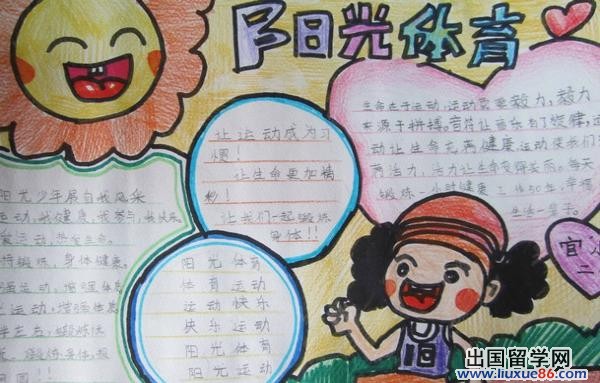 阳光体育
让运动成为习
惯!
让生命更加精
彩!
让我们一起锻炼
身体!!
生命在于运动,运动需要毅力,毅力
来源于拼搏。音符让音乐有了旋律,运
动让生命充满健康。运动使我们
活力,活力让生命变得美丽。每天
锻炼一小时健康工作50年,幸福
生活一辈子。
阳光少年展自我风采
运动,我健康,我参与,我快乐。
运动,热爱生命。
锻炼,身体健康。
运动,增强体质
运动,增强体质
阳光体育
体育运动
运动快乐
快乐运动
阳光体育
阳光运动
宜
二
出国留学网
www.liuxue86.com